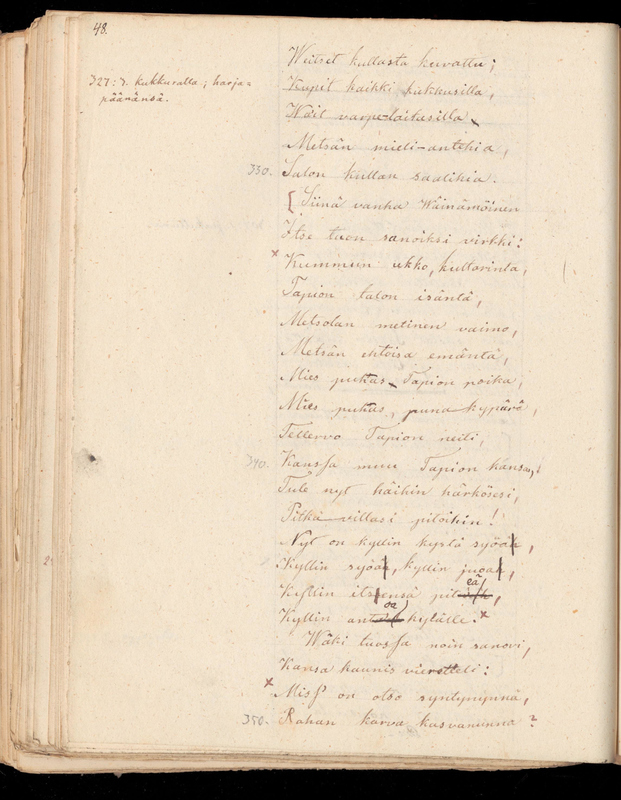 48.
327: 7. kukkuralta; harja=
päänänsä.
Weitset kullasta kuvattu;
Kupit kaikki kukkusilla,
Wáit varpe-laitasilla
Metsän mieli-antehia,
330. Salon kullan saalihia.
{ Siinä vanha Wäinämöinen
Itse tuon sanoiksi virkki:
× Kummun ukko, kultarinta,
Tapion talon isäntä,
Metsolan metinen vaimo,
Metsän ehtoisa emäntä,
Mies puhas Tapion poika,
Mies puhas, puna-kypärä,
Tellervo Tapion neiti,
340. Kanssa muu Tapion kansa,
Tule nyt häihin härkösesi,
Pitkä-villasi pitoihin!
Nyt on kyllin kystä syöä,
Kyllin syöä, kyllin juoa,
Kyllin itsensä piteä,
Kyllin antoa kylälle. ×
Wäki tuossa noin sanovi,
Kansa kaunis vierotteli:
× Miss' on otso syntynynnä,
350. Rahan karva kasvanunna?